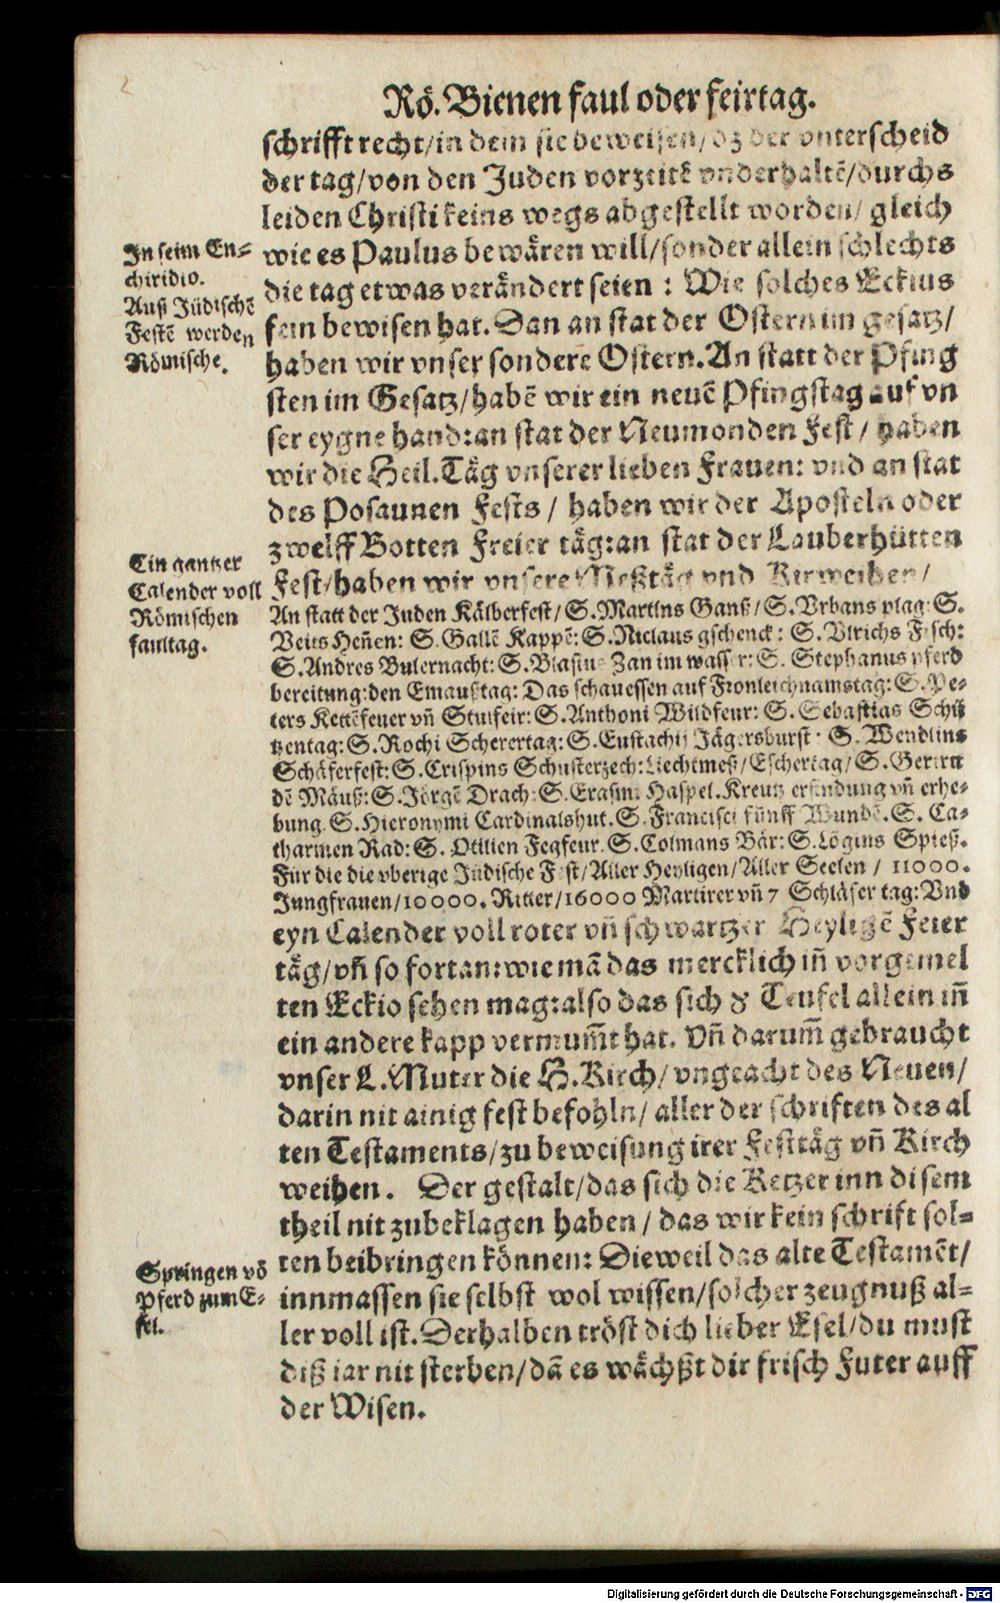 Rö. Bienen faul oder feirtag.
schrifft recht/in dem sie beweisen/dz der vnterscheid
der tag/von den Juden vorzeitē vnderhaltē/durchs
leiden Christi keins wegs abgestellt worden/ gleich
wie es Paulus bewären will/sonder allein schlechts
die tag etwas verändert seien : Wie solches Eckius
fein bewisen hat. Dan an stat der Ostern im gesatz/
haben wir vnser sondere Ostern. An statt der Pfing
sten im Gesatz/habē wir ein neuē Pfingstag auf vn
ser eygne hand: an stat der Neumonden Fest/ haben
wir die Heil. Täg vnserer lieben Frauen: vnd an stat
des Posaunen Fests / haben wir der Aposteln oder
zwelff Botten Freier täg: an stat der Lauberhütten
Fest/haben wir vnsere Meßtäg vnd Kirweihen/
An statt der Juden Kälberfest/ S. Martins Ganß/ S. Vrbans plag: S.
Veits Heñen: S. Gallē Kappē: S. Niclaus gschenck: S. Vlrichs Fisch:
S. Andres Bulernacht: S. Blasius Zan im wasser: S. Stephanus pferd
bereitung: den Emaußtag: Das schauessen auf Fronleichnamstag: S. Pe-
ters Kettēfeuer vñ Stulfeir: S. Anthoni Wildfeur: S. Sebastias Schü
tzentag: S. Rochi Scherertag: S. Eustachij Jägersburst: S. Wendlins
Schäferfest: S. Crispins Schusterzech: Liechtmeß/ Eschertag/ S.
dē Mäuß: S. Jörgē Drach: S. Erasmi Haspel. Kreutz erfindung vñ erhe-
bung. S. Hieronymi Cardinalshut. S. Francisci fünff Wundē. S. Ca-
tharinen Rad: S. Otilien Fegfeur. S. Colmans Bär: S. Lōgins Spieß.
Für die die vberige Jüdische Fest/Aller Heyligen/Aller Seelen / 11000.
Jungfrauen/10000. Ritter/16000 Martirer vñ 7 Schläfer tag: Vnd
eyn Calender voll roter vñ schwartzer Heyligē Feier
täg/vñ so fortan: wie mā das mercklich iñ vorgemel
ten Eckio sehen mag: also das sich d' Teufel allein iñ
ein andere kapp vermum̄t hat. Vñ darum̄ gebraucht
vnser L. Muter die H. Kirch/ vngeacht des Neuen/
darin nit ainig fest befohln/ aller der schriften des al
ten Testaments/zu beweisung irer Festtäg vñ Kirch
weihen. Der gestalt/das sich die Ketzer inn disem
theil nit zubeklagen haben / das wir kein schrift sol-
ten beibringen können: Dieweil das alte Testamēt/
innmassen sie selbst wol wissen/solcher zeugnuß al-
ler voll ist. Derhalben tröst dich lieber Esel/du must
diß iar nit sterben/dā es wächßt dir frisch Futer auff
der Wisen.
In seim En-
chiridio.
Auß Jüdischē
Festē werden
Römische.
Ein gantzer
Calender voll
Römischen
faultag.
Springen vō
Pferd zum E-
sel.
Digitalisierung gefördert durch die Deutsche Forschungsgemeinschaft - DFG